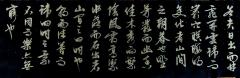 若夫日出而林
霏開雲歸而
巖穴暝晦明
變化者山間
之朝暮也野
芳發而幽香
佳木秀而繁
陰風霜高潔
水落而石出者
山間之四時也
朝而往暮而
歸四時之景
不同而樂亦無
窮也